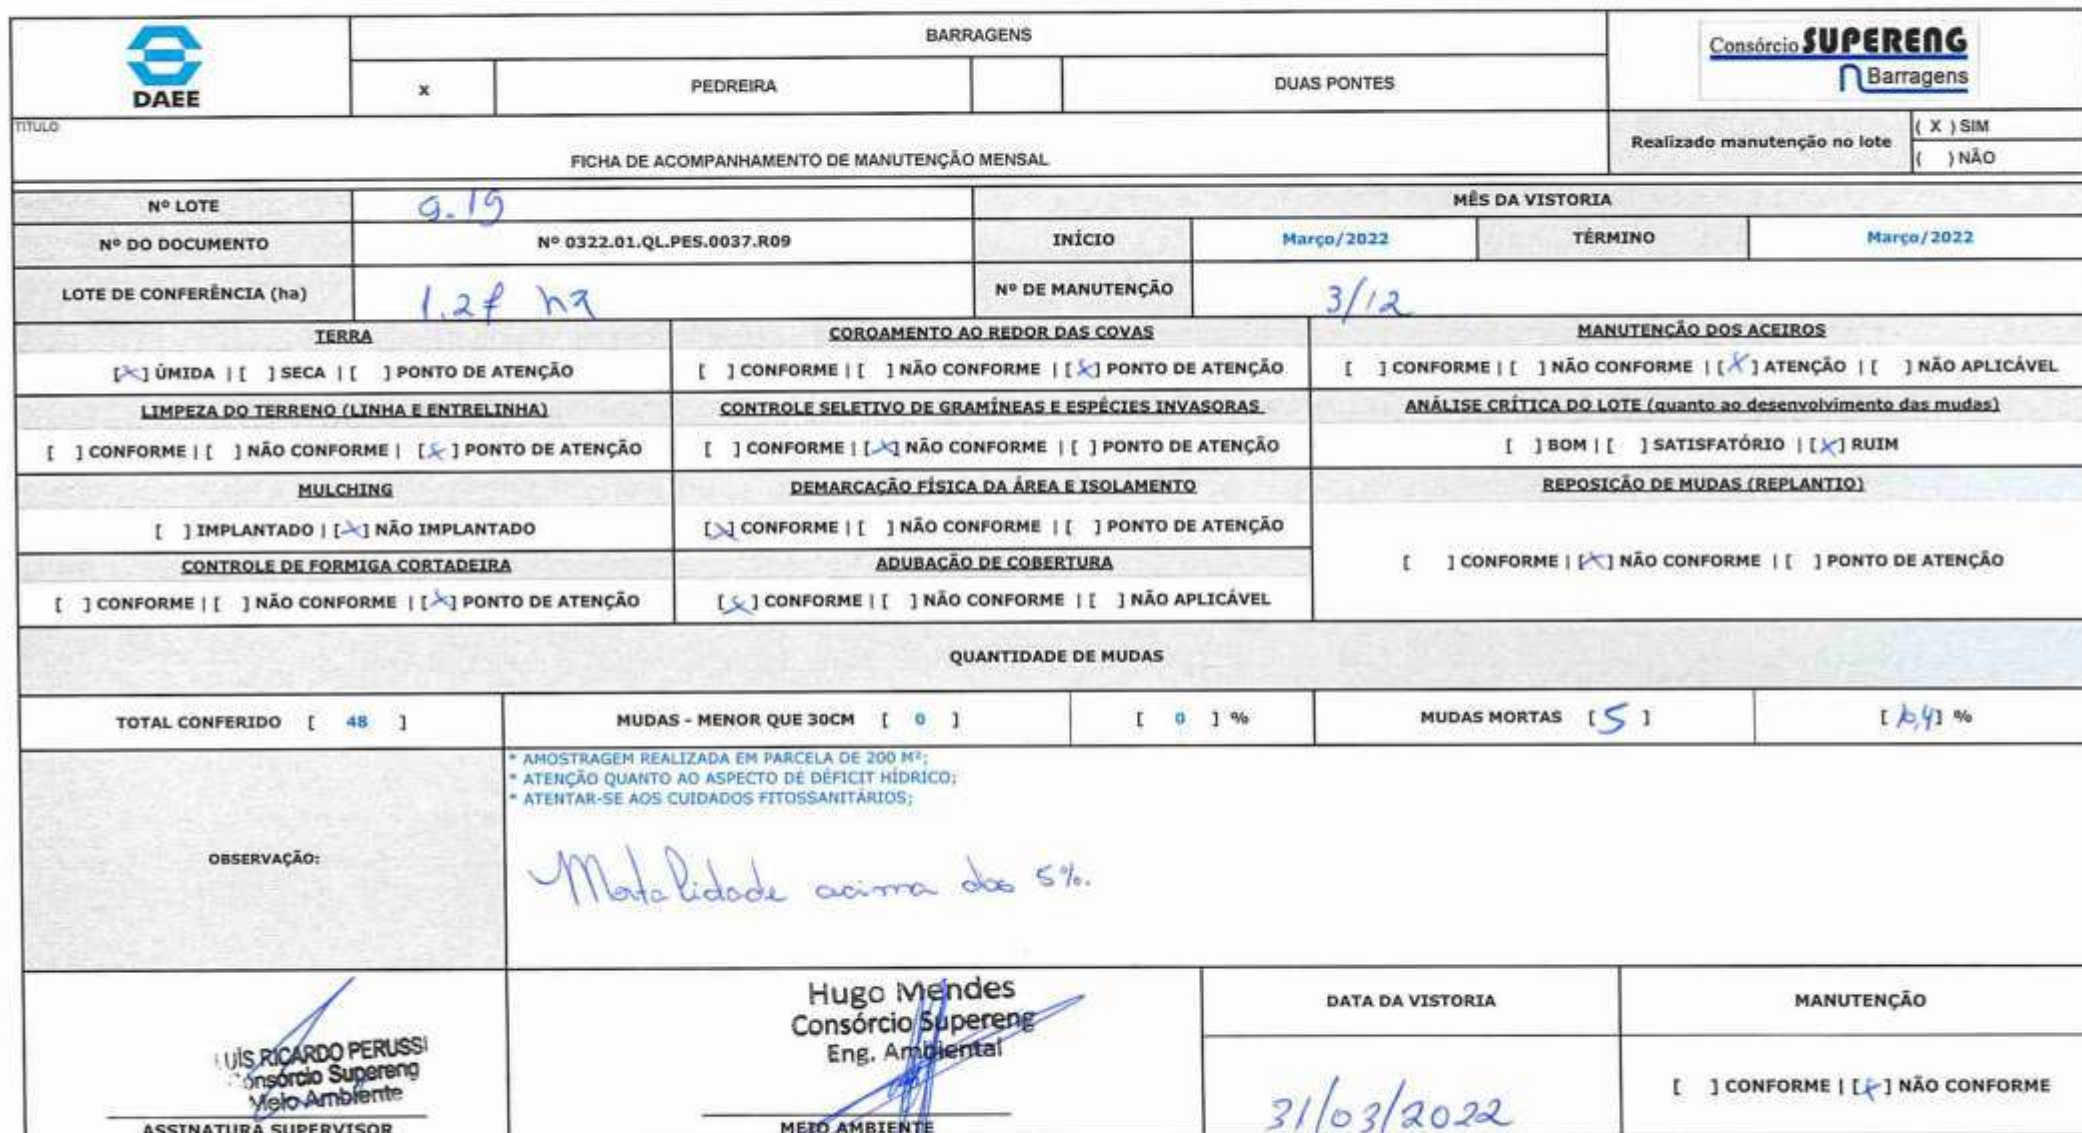 DAEE
BARRAGENS
x PEDREIRA DUAS PONTES
Consórcio SUPERENG
Barragens
TITULO
FICHA DE ACOMPANHAMENTO DE MANUTENÇÃO MENSAL
Realizado manutenção no lote
( X ) SIM
( ) NÃO
Nº LOTE 9.19
MÊS DA VISTORIA
Nº DO DOCUMENTO Nº 0322.01.QL.PES.0037.R09 INÍCIO Março/2022 TÉRMINO Março/2022
LOTE DE CONFERÊNCIA (ha) ha Nº DE MANUTENÇÃO 3/12
TERRA
[X] ÚMIDA | [ ] SECA | [ ] PONTO DE ATENÇÃO
COROAMENTO AO REDOR DAS COVAS
[ ] CONFORME | [ ] NÃO CONFORME | [X] PONTO DE ATENÇÃO
MANUTENÇÃO DOS ACEIROS
[ ] CONFORME | [ ] NÃO CONFORME | [X] ATENÇÃO | [ ] NÃO APLICÁVEL
LIMPEZA DO TERRENO (LINHA E ENTRELINHA)
[ ] CONFORME | [ ] NÃO CONFORME | [X] PONTO DE ATENÇÃO
CONTROLE SELETIVO DE GRAMÍNEAS E ESPÉCIES INVASORAS
[ ] CONFORME | [X] NÃO CONFORME | [ ] PONTO DE ATENÇÃO
ANÁLISE CRÍTICA DO LOTE (quanto ao desenvolvimento das mudas)
[ ] BOM | [ ] SATISFATÓRIO | [X] RUIM
MULCHING
[ ] IMPLANTADO | [X] NÃO IMPLANTADO
DEMARCAÇÃO FÍSICA DA ÁREA E ISOLAMENTO
[X] CONFORME | [ ] NÃO CONFORME | [ ] PONTO DE ATENÇÃO
REPOSIÇÃO DE MUDAS (REPLANTIO)
[ ] CONFORME | [X] NÃO CONFORME | [ ] PONTO DE ATENÇÃO
CONTROLE DE FORMIGA CORTADEIRA
[ ] CONFORME | [ ] NÃO CONFORME | [X] PONTO DE ATENÇÃO
ADUBAÇÃO DE COBERTURA
[X] CONFORME | [ ] NÃO CONFORME | [ ] NÃO APLICÁVEL
QUANTIDADE DE MUDAS
TOTAL CONFERIDO [ 48 ] MUDAS - MENOR QUE 30CM [ 0 ] [ 0 ] % MUDAS MORTAS [ 5 ] [ 10,4 ] %
OBSERVAÇÃO:
* AMOSTRAGEM REALIZADA EM PARCELA DE 200 M²;
* ATENÇÃO QUANTO AO ASPECTO DE DÉFICIT HÍDRICO;
* ATENTAR-SE AOS CUIDADOS FITOSSANITÁRIOS;
Mortalidade acima dos 5%.
LUÍS RICARDO PERUSSI
Consórcio Supereng
Meio Ambiente
ASSINATURA SUPERVISOR
Hugo Mendes
Consórcio Supereng
Eng. Ambiental
MEIO AMBIENTE
DATA DA VISTORIA
31/03/2022
MANUTENÇÃO
[ ] CONFORME | [X] NÃO CONFORME